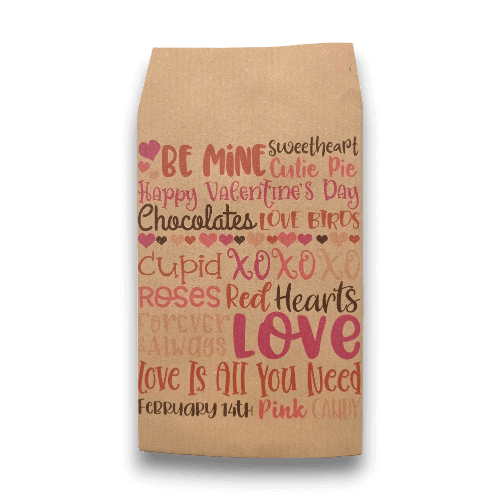 BE MINE Sweetheart
Cutie Pie
Happy Valentine's Day
Chocolates LOVE BIRDS
Cupid XOXOXO
ROSES Red Hearts
FOREVER & ALWAYS LOVE
Love Is All You Need
FEBRUARY 14TH Pink CANDY